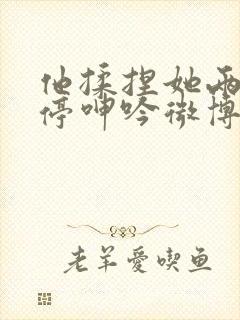 他揉捏她两
停呻吟微博
老羊爱喫鱼